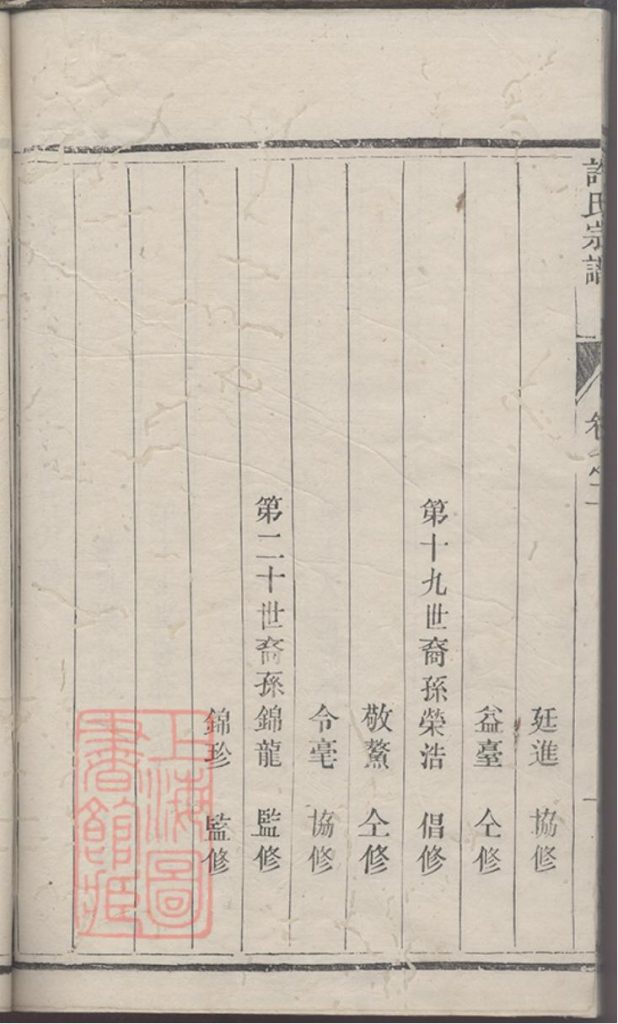 許氏宗譜
卷之二
廷進 協修
益臺 仝修
第十九世裔孫榮浩 倡修
敬鰲 仝修
令毫 協修
第二十世裔孫錦龍 監修
錦珍 監修
上海圖
書館藏